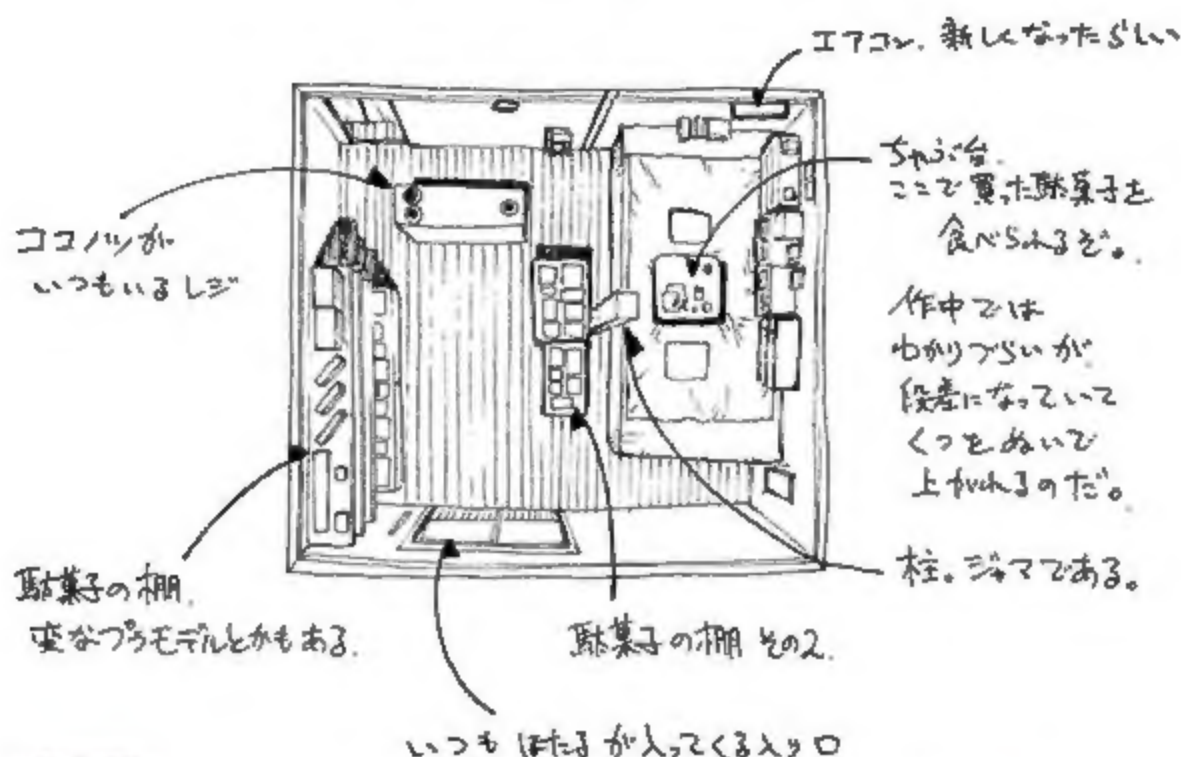 エアコン、新しくなったらしい
ちゃぶ台。
ここで買った駄菓子を
食べられるぞ。
ココノツが
いつもいるレジ
作中では
わかりづらいが
段差になっていて
くつをぬいで
上がれるのだ。
柱。ジャマである。
駄菓子の棚。
変なプラモデルとかもある。
駄菓子の棚 その2.
いつも ほたる が入ってくる入り口